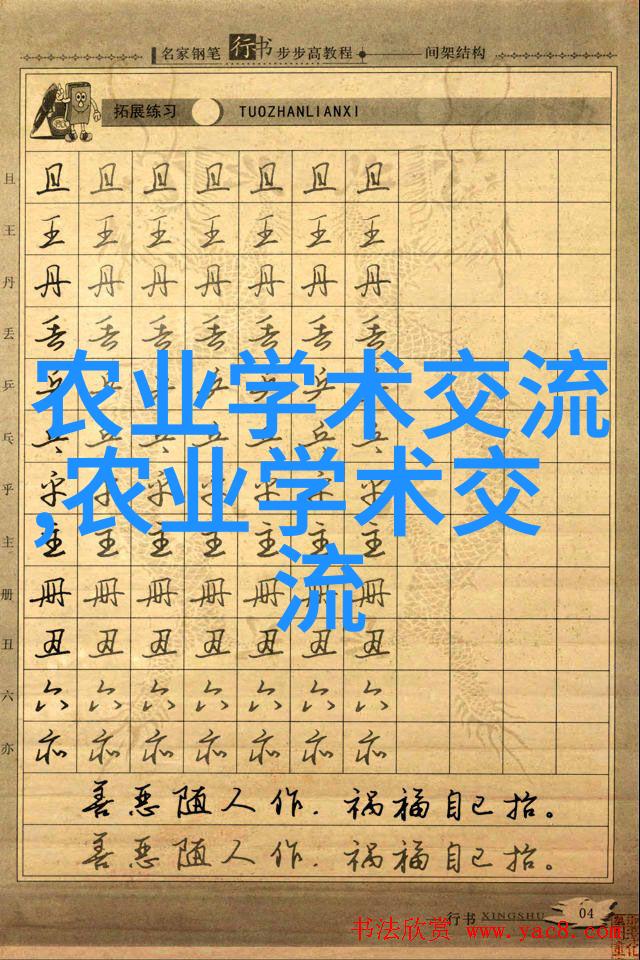 名家钢笔 行书 步步高教程 间架结构
拓展练习 TUOZHANLIANXI
且 且 且 且 且 且 且 且
王 王 王 王 王 王 王 王
丹 丹 丹 丹 丹 丹 丹 丹
丢 丢 丢 丢 丢 丢 丢 丢
乒 乒 乒 乒 乒 乒 乒 乒
农业学术交流
乓 乓 乓 乓 乓 乓 乓 乓
乎 乎 乎 乎 乎 乎 乎 乎
,农业学术交
主 主 主 主 主 主 主 主
册 册 册 册 册 册 册 册
流
丑 丑 丑 丑 丑 丑 丑 丑
六 六 六 六 六 六 六 六
亦 亦 亦 亦 亦 亦 亦 亦
善恶随人作.祸福自己招。
善恶随人作.祸福自己招。
行书 XINGSHU 04
书法欣赏 www.yac8.com